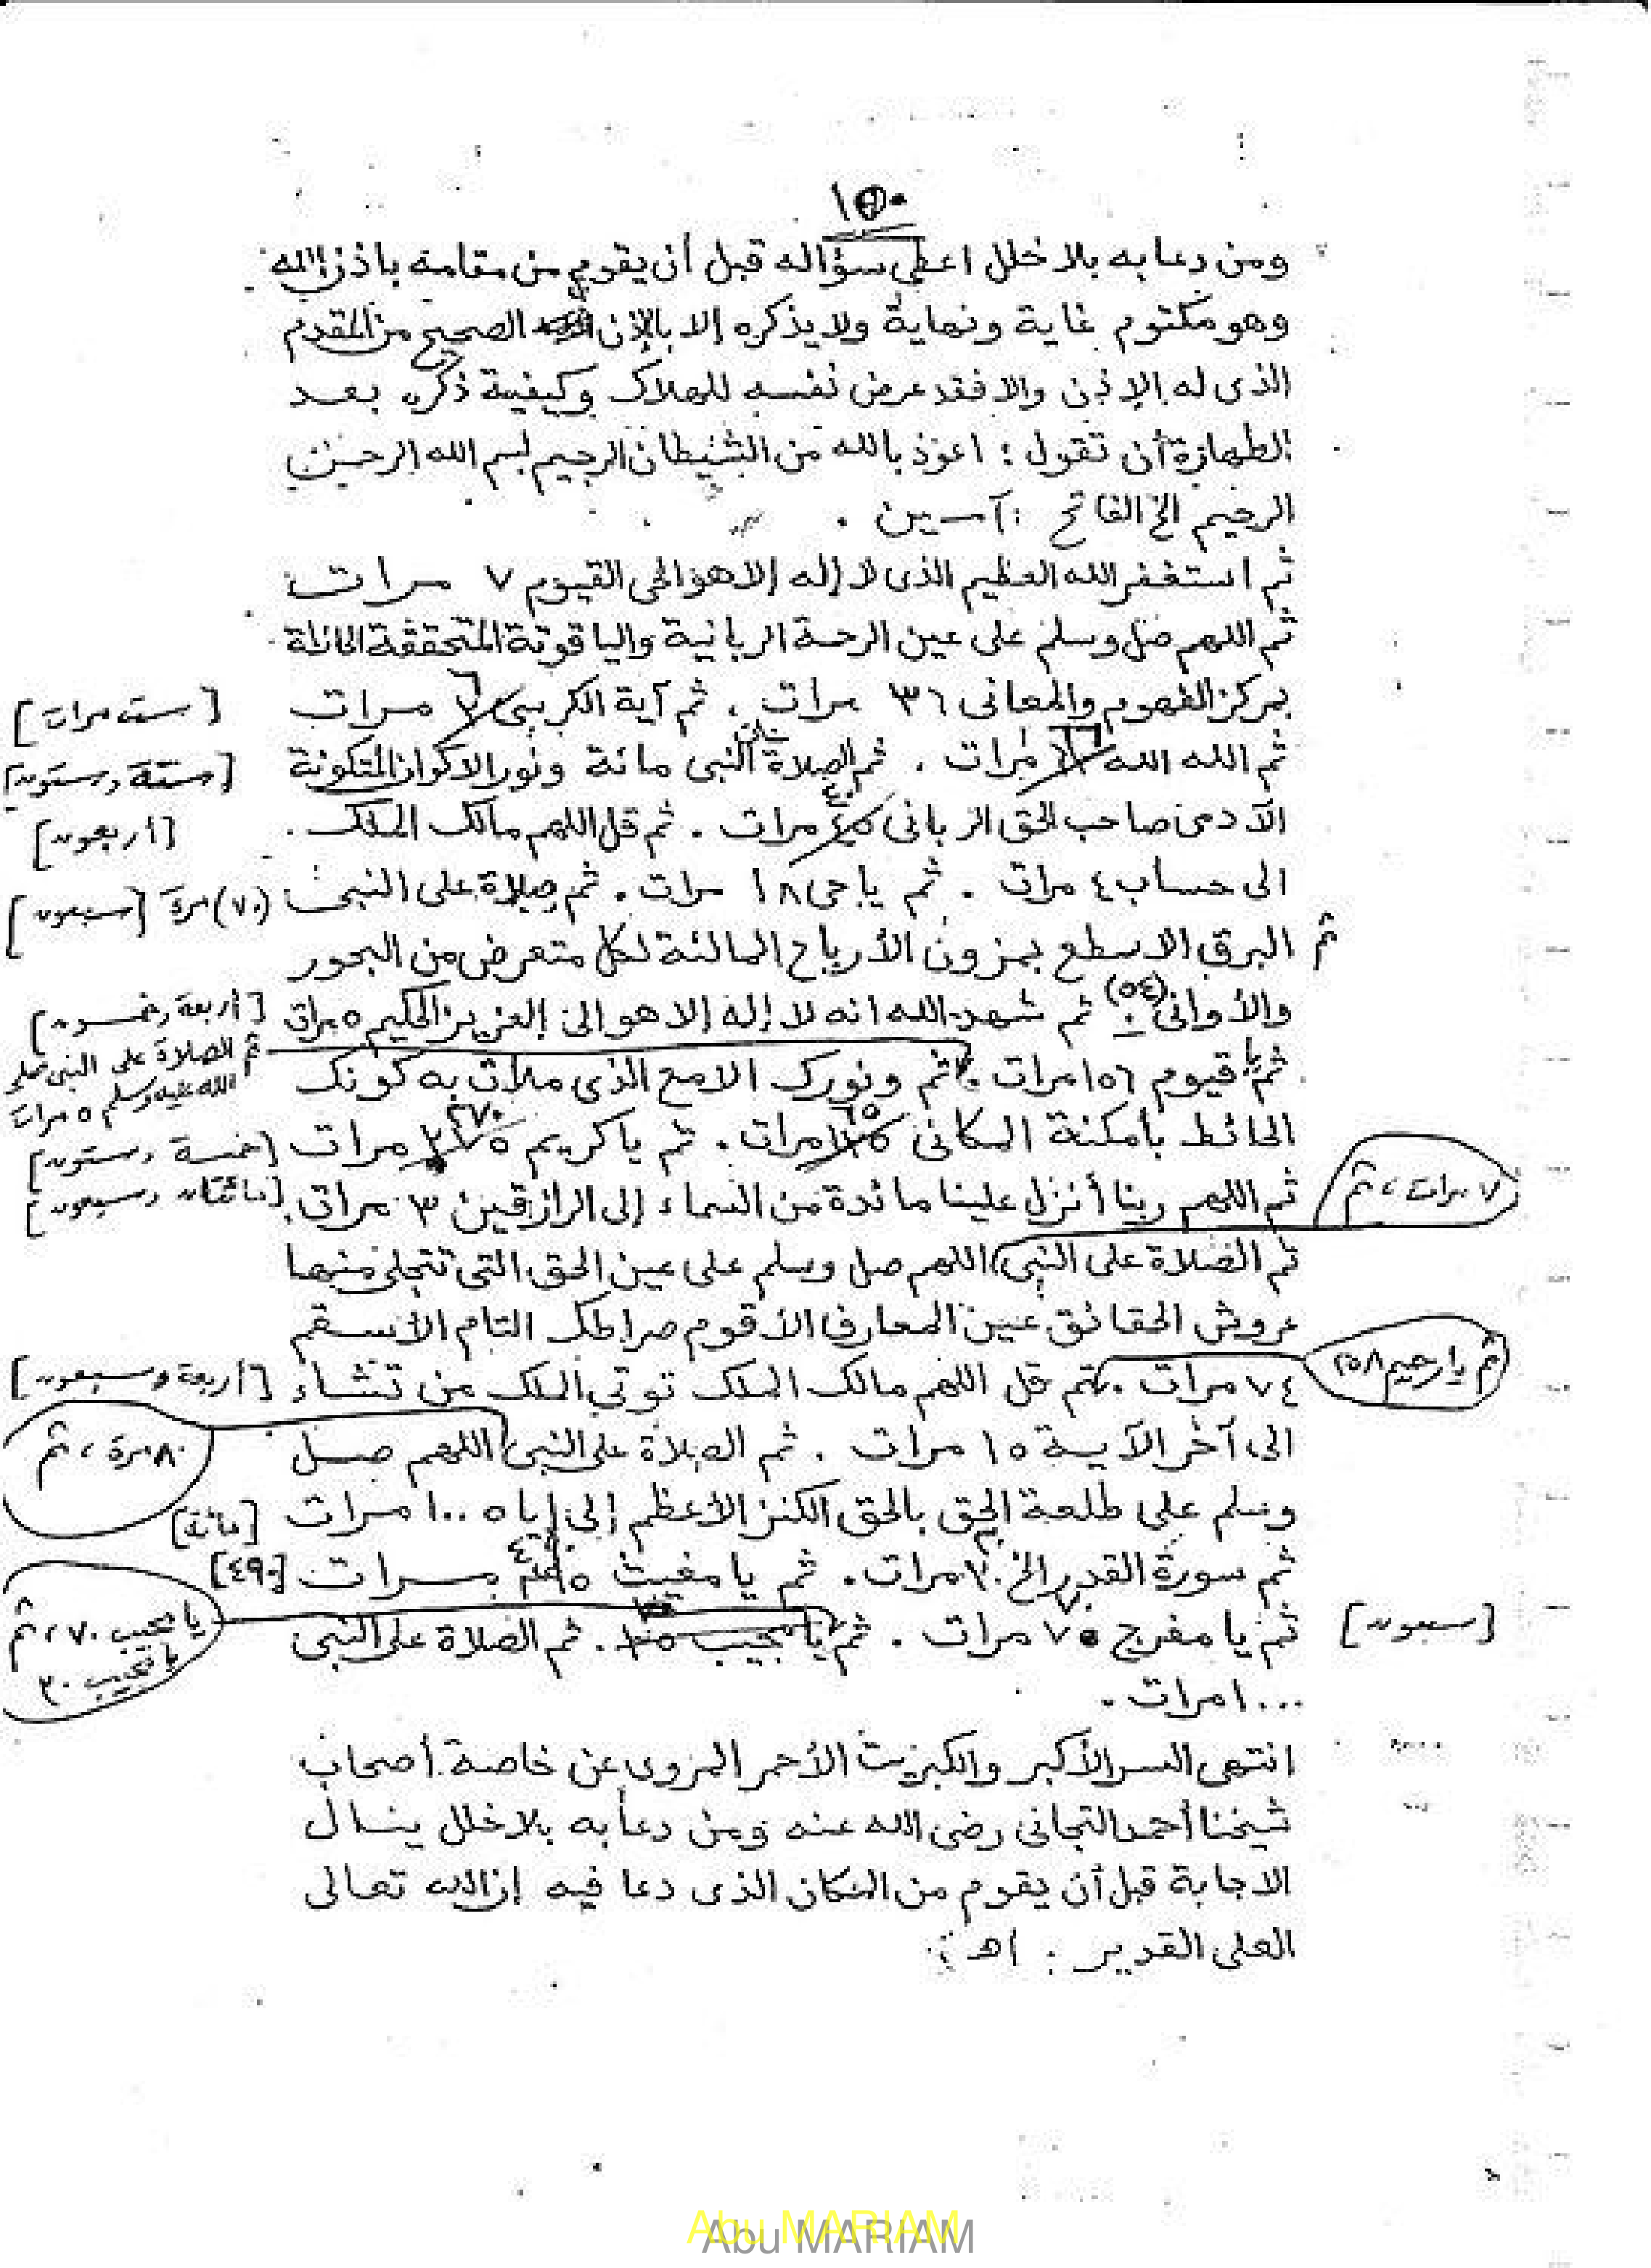 ١٥٠
ومن دعا به بلا خلل اعطى سؤاله قبل أن يقوم من مقامه باذن الله
وهو مكتوم غاية ونهاية ولا يذكره إلا بالإذن الصحيح من المقدم
الذى له الإذن والا فقد عرض نفسه للهلاك وكيفية ذكره بعد
الطهارة أن تقول : اعوذ بالله من الشيطان الرجيم بسم الله الرحمن
الرحيم الخ الفاتح : آمـين .
ثم استغفر الله العظيم الذى لا إله إلا هو الحى القيوم ٧ مرات
ثم اللهم صل وسلم على عين الرحمة الربانية والياقوتة المتحققة الحائطة
بمركز الفهوم والمعانى ٣٦ مرات . ثم آية الكرسى ٦ مرات [ست مرات]
ثم الله الله ٦٦ مرات . ثم الصلاة النبى مائة ونور الاكوان المتكونة [ستة وستون]
الآدمى صاحب الحق الربانى ٤٠ مرات . ثم قل اللهم مالك الملك . [أربعون]
الى حساب ٤ مرات . ثم يا حى ١٨ مرات . ثم صلاة على النبى (٧٠) مرة [سبعون]
ثم البرق الاسطع بمزون الأرباح المالئة لكل متعرض من البحور
والأوانى (٥٤) . ثم شهد الله انه لا إله إلا هو الى العزيز الحكيم ٥ مرات [أربعة وخمسون]
ثم الصلاة على النبى صلى
الله عليه وسلم ٥ مرات
ثم يا قيوم ١٥٦ مرات . ثم ونورك الامع الذى ملأت به كونك
الحائط بأمكنة المكانى ٦٥ مرات . ثم يا كريم ٢٧٠ مرات [خمسة وستون]
[مائتان وسبعون]
٧ مرات ، ثم
ثم اللهم ربنا أنزل علينا مائدة من السماء إلى الرازقين ٣ مرات .
ثم الصلاة على النبى اللهم صل وسلم على عين الحق التى تتجلى منها
عروش الحقائق عين المعارف الأقوم صراطك التام الأسقم
ثم يا رحيم ٢٥٨
٧٤ مرات . ثم قل اللهم مالك الملك توتي الملك من تشاء [أربعة وسبعون]
الى آخر الآية ١٥ مرات . ثم الصلاة على النبى اللهم صل
٨٠ مرة ، ثم
وسلم على طلعة الحق بالحق الكنز الأعظم إلى إياه ١٠٠ مرات [مائة]
ثم سورة القدر الخ ١٠ مرات . ثم يا مغيث مرات [٤٩٠]
ثم يا مفرج ٧٠ مرات . ثم يا مجيب . ثم الصلاة على النبى [سبعون]
يا مجيب ٧٠ ، ثم
١٠٠٠ مرات .
انتهى السر الأكبر والكبريت الأحمر المروى عن خاصة أصحاب
شيخنا أحمد التجانى رضى الله عنه ومن دعا به بلا خلل ينال
الاجابة قبل أن يقوم من المكان الذى دعا فيه إن الله تعالى
العلى القدير : اهـ :
Abu MARIAM
Abu MARIAM